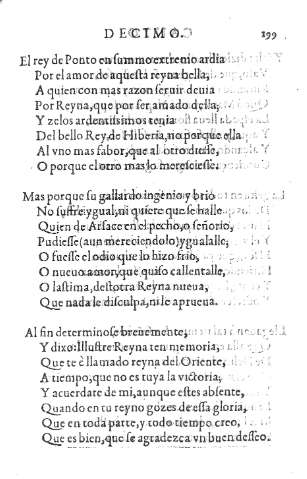 DECIMO. 199
El rey de Ponto en summo extremo ardia
Por el amor de aquesta reyna bella,
A quien con mas razon seruir deuia
Por Reyna, que por ser amado della,
Y zelos ardentissimos tenia
Del bello Rey, de Hiberia, no porque ella
Al vno mas fabor, que al otro diesse,
O porque el otro mas lo meresciesse.
Mas porque su gallardo ingenio y brio
No suffre ygual, ni quiere que se halle
Quien de Arsace en el pecho, o señorio,
Pudiesse (aun mereciendolo) ygualalle;
O fuesse el odio que lo hizo frio,
O nueuo amor, que quiso callentalle,
O lastima, destotra Reyna nueua,
Que nada le disculpa, ni le aprueua.
Al fin determinose breuemente,
Y dixo: Illustre Reyna ten memoria,
Que te è llamado reyna del Oriente,
A tiempo, que no es tuya la victoria;
Y acuerdate de mi, aunque estes absente,
Quando en tu reyno gozes de essa gloria,
Que en toda parte, y todo tiempo creo,
Que es bien, que se agradezca vn buen desseo.